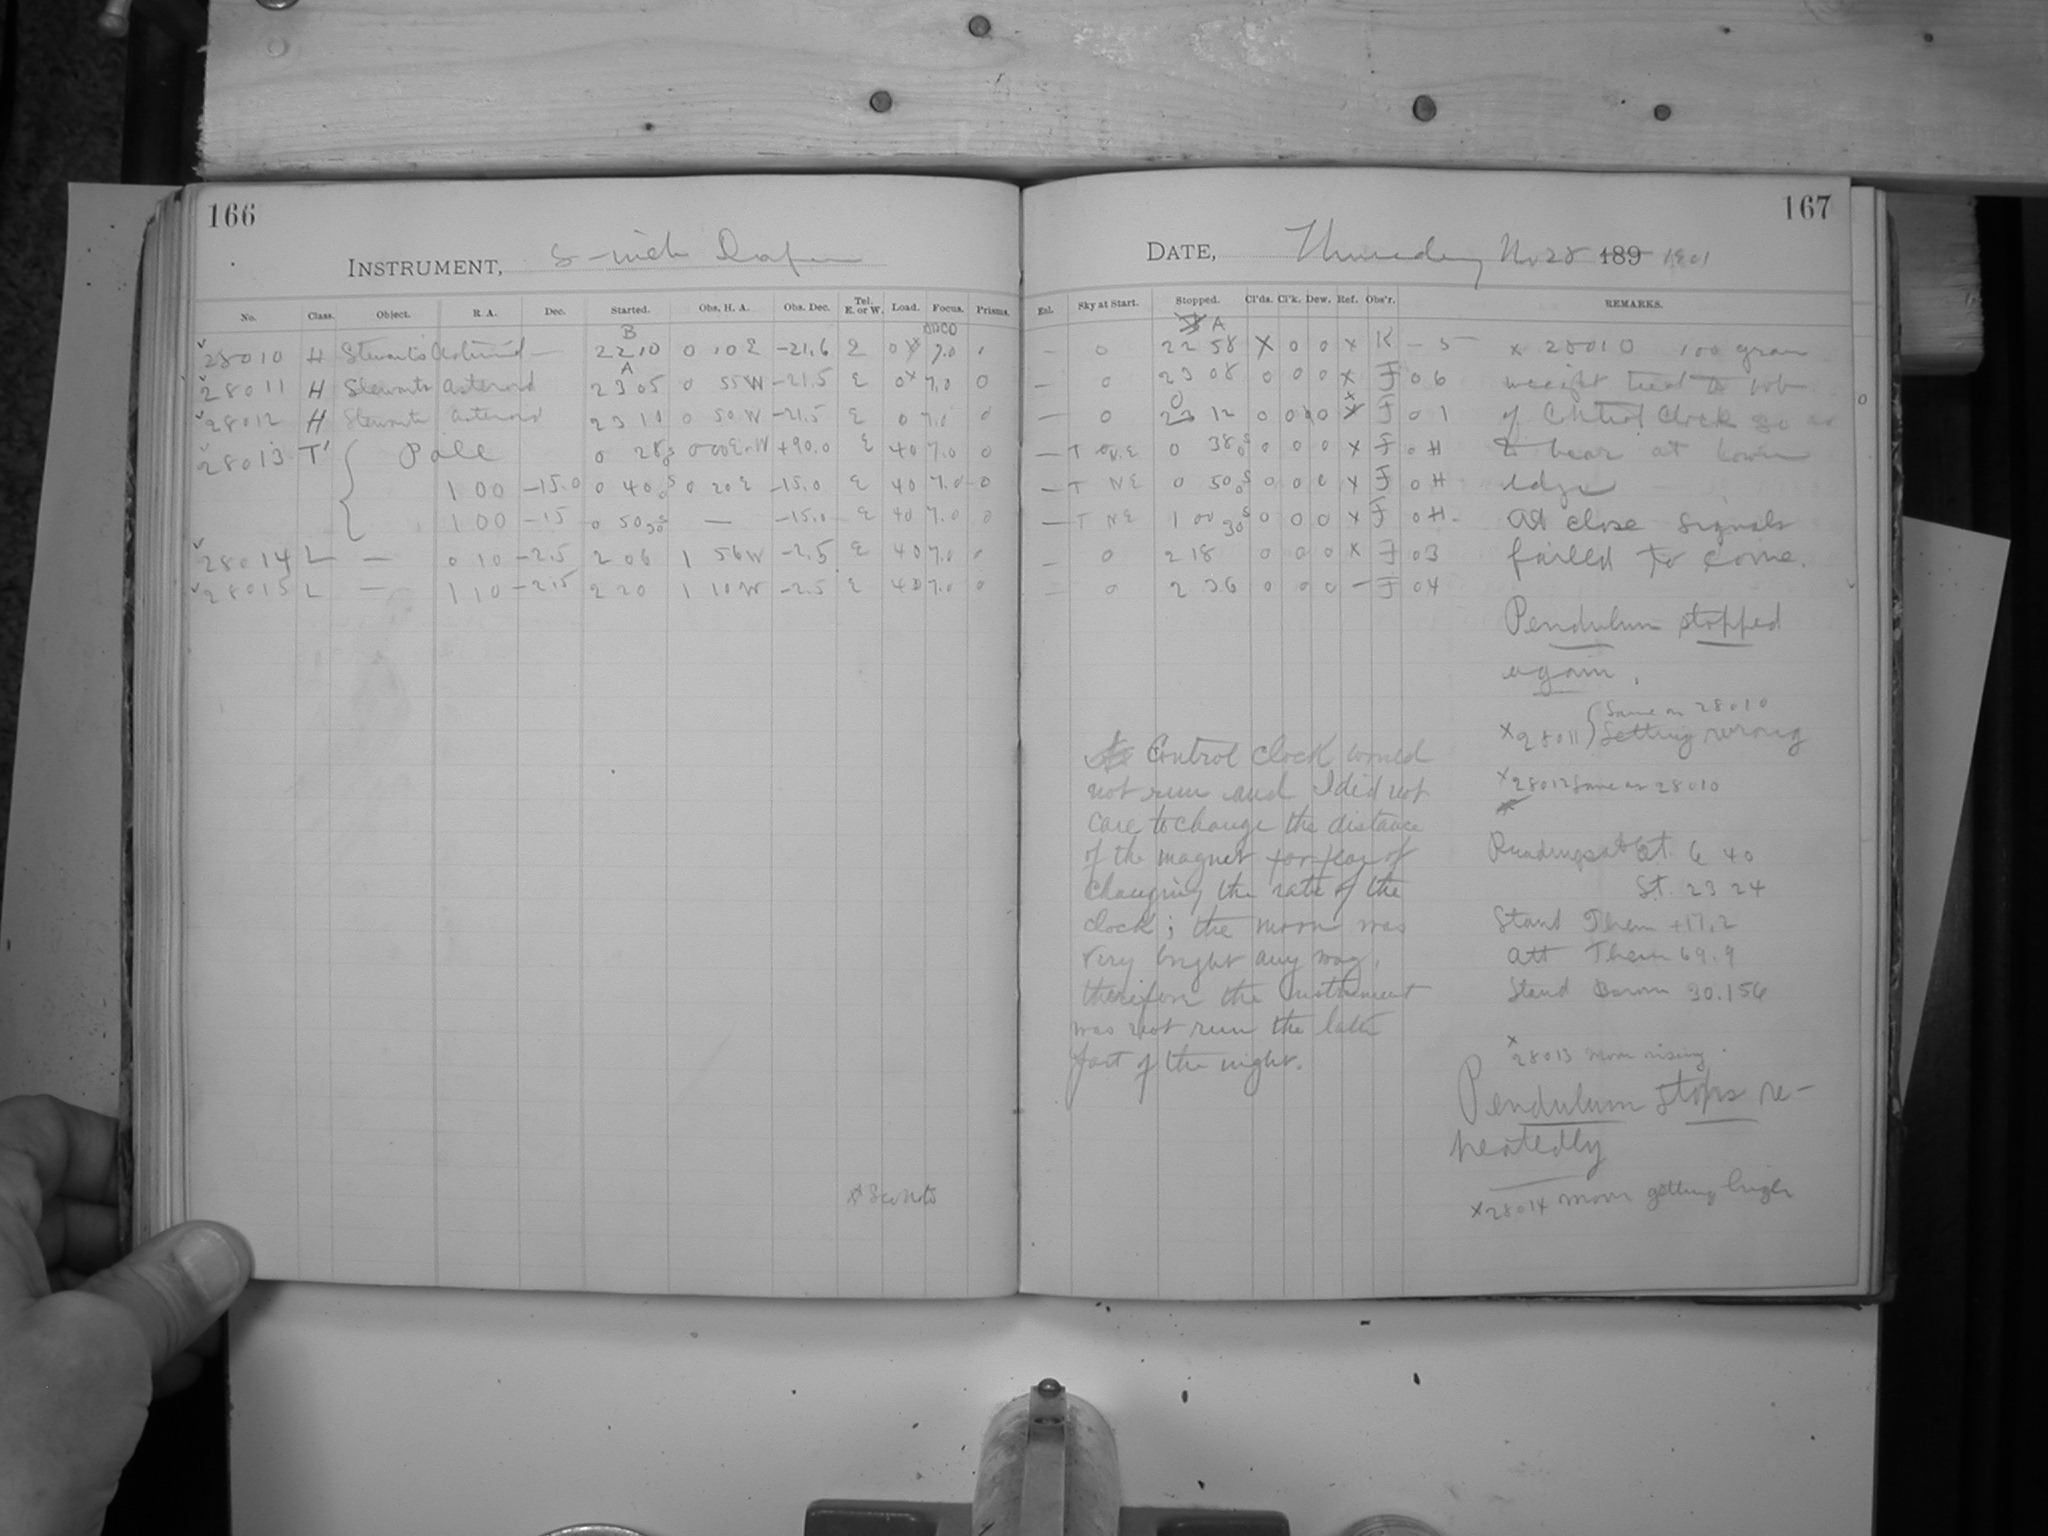 166
INSTRUMENT, 8-inch Draper
No. Class. Object. R. A. Dec. Started. Obs. H. A. Obs. Dec. Tel. E. or W. Load. Focus. Prisms.
B
28010 H Stewart's Asteroid — 22 10 0 10 E -21.6 E 0 7.0
A
28011 H Stewarts asteroid 23 05 0 55 W -21.5 E 0x 7.0 0
28012 H Stewarts asteroid 23 10 0 50 W -21.5 E 0 7.0 0
28013 T' { Pole 0 28 +90.0 E 40 7.0 0
1 00 -15.0 0 40 0 20 E -15.0 E 40 7.0 0
1 00 -15 0 50 — -15.0 E 40 7.0 0
28014 L — 0 10 -2.5 2 06 1 56 W -2.5 E 40 7.0
28015 L — 1 10 -2.5 2 20 1 10 W -2.5 E 40 7.0 0
167
DATE, Thursday Nov 28 189 1901
Enl. Sky at Start. Stopped. Cl'ds. Cl'k. Dew. Ref. Obs'r. REMARKS.
A
— 0 22 58 X 0 0 x K – 5
— 0 23 08 0 0 0 x F 0 6
— 0 23 12 0 0 0 x F 0 1
— T N.E 0 38 0 0 0 x F 0 H
— T NE 0 50 0 0 0 x F 0 H
— T NE 1 00 30 0 0 0 x F 0 H
— 0 2 18 0 0 0 x F 0 3
— 0 2 36 0 0 0 – F 0 4
x 28010 100 gram
weight tied to bob
of Control Clock so as
to bear at lower
edge
At close signals
failed to come.
Pendulum stopped
again.
x 28011 { Same as 28010
Setting wrong
x 28012 Same as 28010
Readings at 6 40
St. 23 24
Stand Therm +17.2
Att Therm 69.9
Stand Barom 30.156
x 28013 moon rising.
Pendulum stops re-
peatedly
x 28014 moon getting high
Control clock would
not run and I did not
care to change the distance
of the magnet for fear of
changing the rate of the
clock; the moon was
very bright any way,
therefore the instrument
was not run the latter
part of the night.